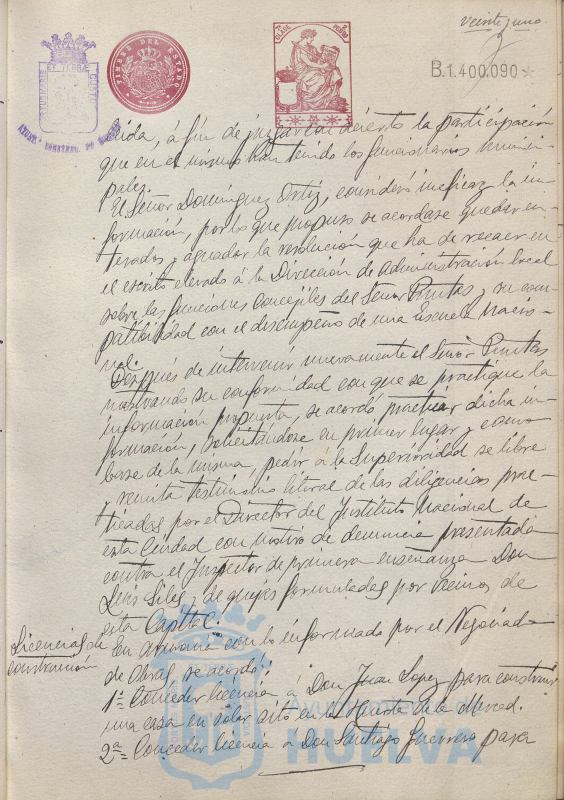 veintiuno
PORTUS MARIS ET TERRAE CUSTODIA
TIMBRE DEL ESTADO
CLASE
B.1.400.090
dida, á fin de juzgar con acierto la participación
que en el mismo han tenido los funcionarios munici-
pales.
El Señor Domínguez Ortiz, consideró ineficaz la in-
formación, por lo que propuso se acordase quedar en-
terados y aguardar la resolución que ha de recaer en
el escrito elevado á la Dirección de Administración local
sobre las funciones concejiles del Señor Pruntas y su com-
patibilidad con el desempeño de una Escuela Nacio-
nal.
Después de intervenir nuevamente el Señor Pruntas
mostrando su conformidad con que se practique la
información propuesta, se acordó practicar dicha in-
formación, solicitándose en primer lugar y como
base de la misma, pedir á la Superioridad se libre
y remita testimonio literal de las diligencias prac-
ticadas por el Director del Instituto Nacional de
esta Ciudad con motivo de denuncia presentada
contra el Inspector de primera enseñanza Don
Luis Siles y de quejas formuladas por vecinos de
esta Capital.
Licencias de
construcción
En armonía con lo informado por el Negociado
de Obras se acordó:
1º= Conceder licencia á Don Juan Lopez para construir
una casa en solar sito en la Fuente de la Merced.
2ª= Conceder licencia á Don Santiago Guerrero para
Ayuntamiento de
HUELVA